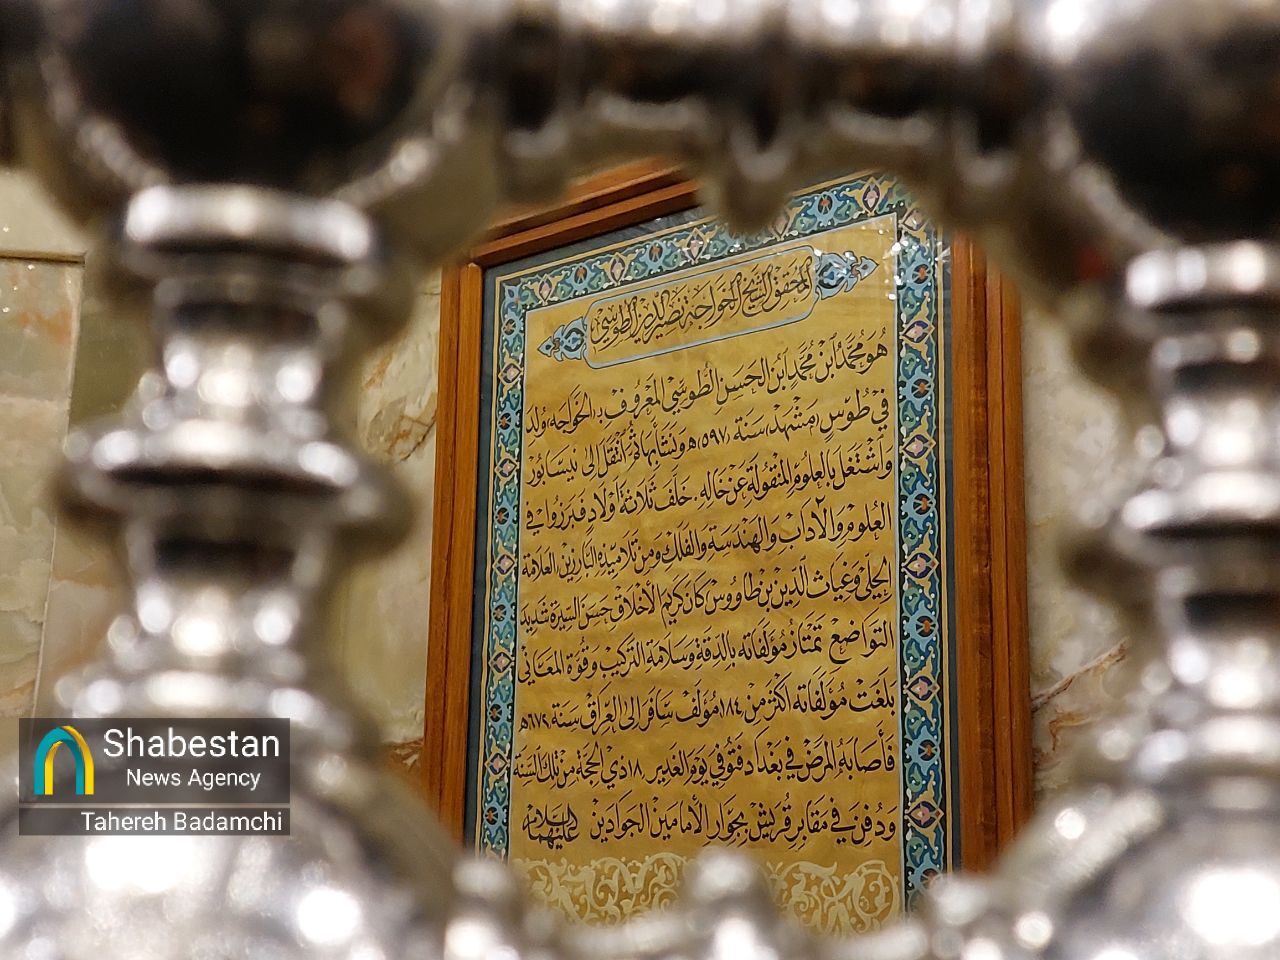 المُحَقِّق الشَّيْخ الخَواجَة نَصِيرُ الدِّين الطُّوسِيّ
هُوَ مُحَمَّدُ ابْنُ مُحَمَّدِ ابْنِ الحَسَنِ الطُّوسِيِّ المَعْرُوفِ بـ الخَواجَه، وُلِدَ
فِي طُوسِ (مَشْهَد) سَنَة (٥٩٧)هـ وَنَشَأَ بِهَا ثُمَّ انْتَقَلَ إلى نِيسَابُورَ
وَاشْتَغَلَ بِالعُلُومِ المَنْقُولَةِ عَنْ خَالِهِ. خَلَفَ ثَلَاثَةَ أَوْلَادٍ فَبَرَزُوا فِي
العُلُومِ وَالآدَابِ وَالهَنْدَسَةِ وَالفَلَكِ وَمِنْ تَلَامِيذِهِ البَارِزِينَ العَلَّامَة
الحِلِّي وَغِيَاث الدِّينِ بْنِ طَاوُوس كَانَ كَرِيمَ الأَخْلَاقِ حَسَنَ السِّيرَةِ شَدِيدَ
التَّوَاضُعِ تَمْتَازُ مُؤَلَّفَاتِهِ بِالدِّقَةِ وَسَلَامَة التَّرْكِيبِ وَقُوَّة المَعَانِي
بَلَغَتْ مُؤَلَّفَاتِه أَكْثَر مِنْ ١٨٤ مُؤَلَّف سَافَرَ إِلى العِرَاقِ سَنَة ٦٧٢هـ
فَأَصَابَهُ المَرَضُ فِي بَغْدَادَ فَتُوُفِّيَ يَوْم الغَدِيرِ ١٨ ذِي الحِجَّة مِنْ تِلْكَ السَّنَة
وَدُفِنَ فِي مَقَابِرِ قُرَيْش بِجِوَارِ الأِمَامَيْنِ الجَوَادَيْن عَلَيْهِمَا السَّلَام
Shabestan
News Agency
Tahereh Badamchi